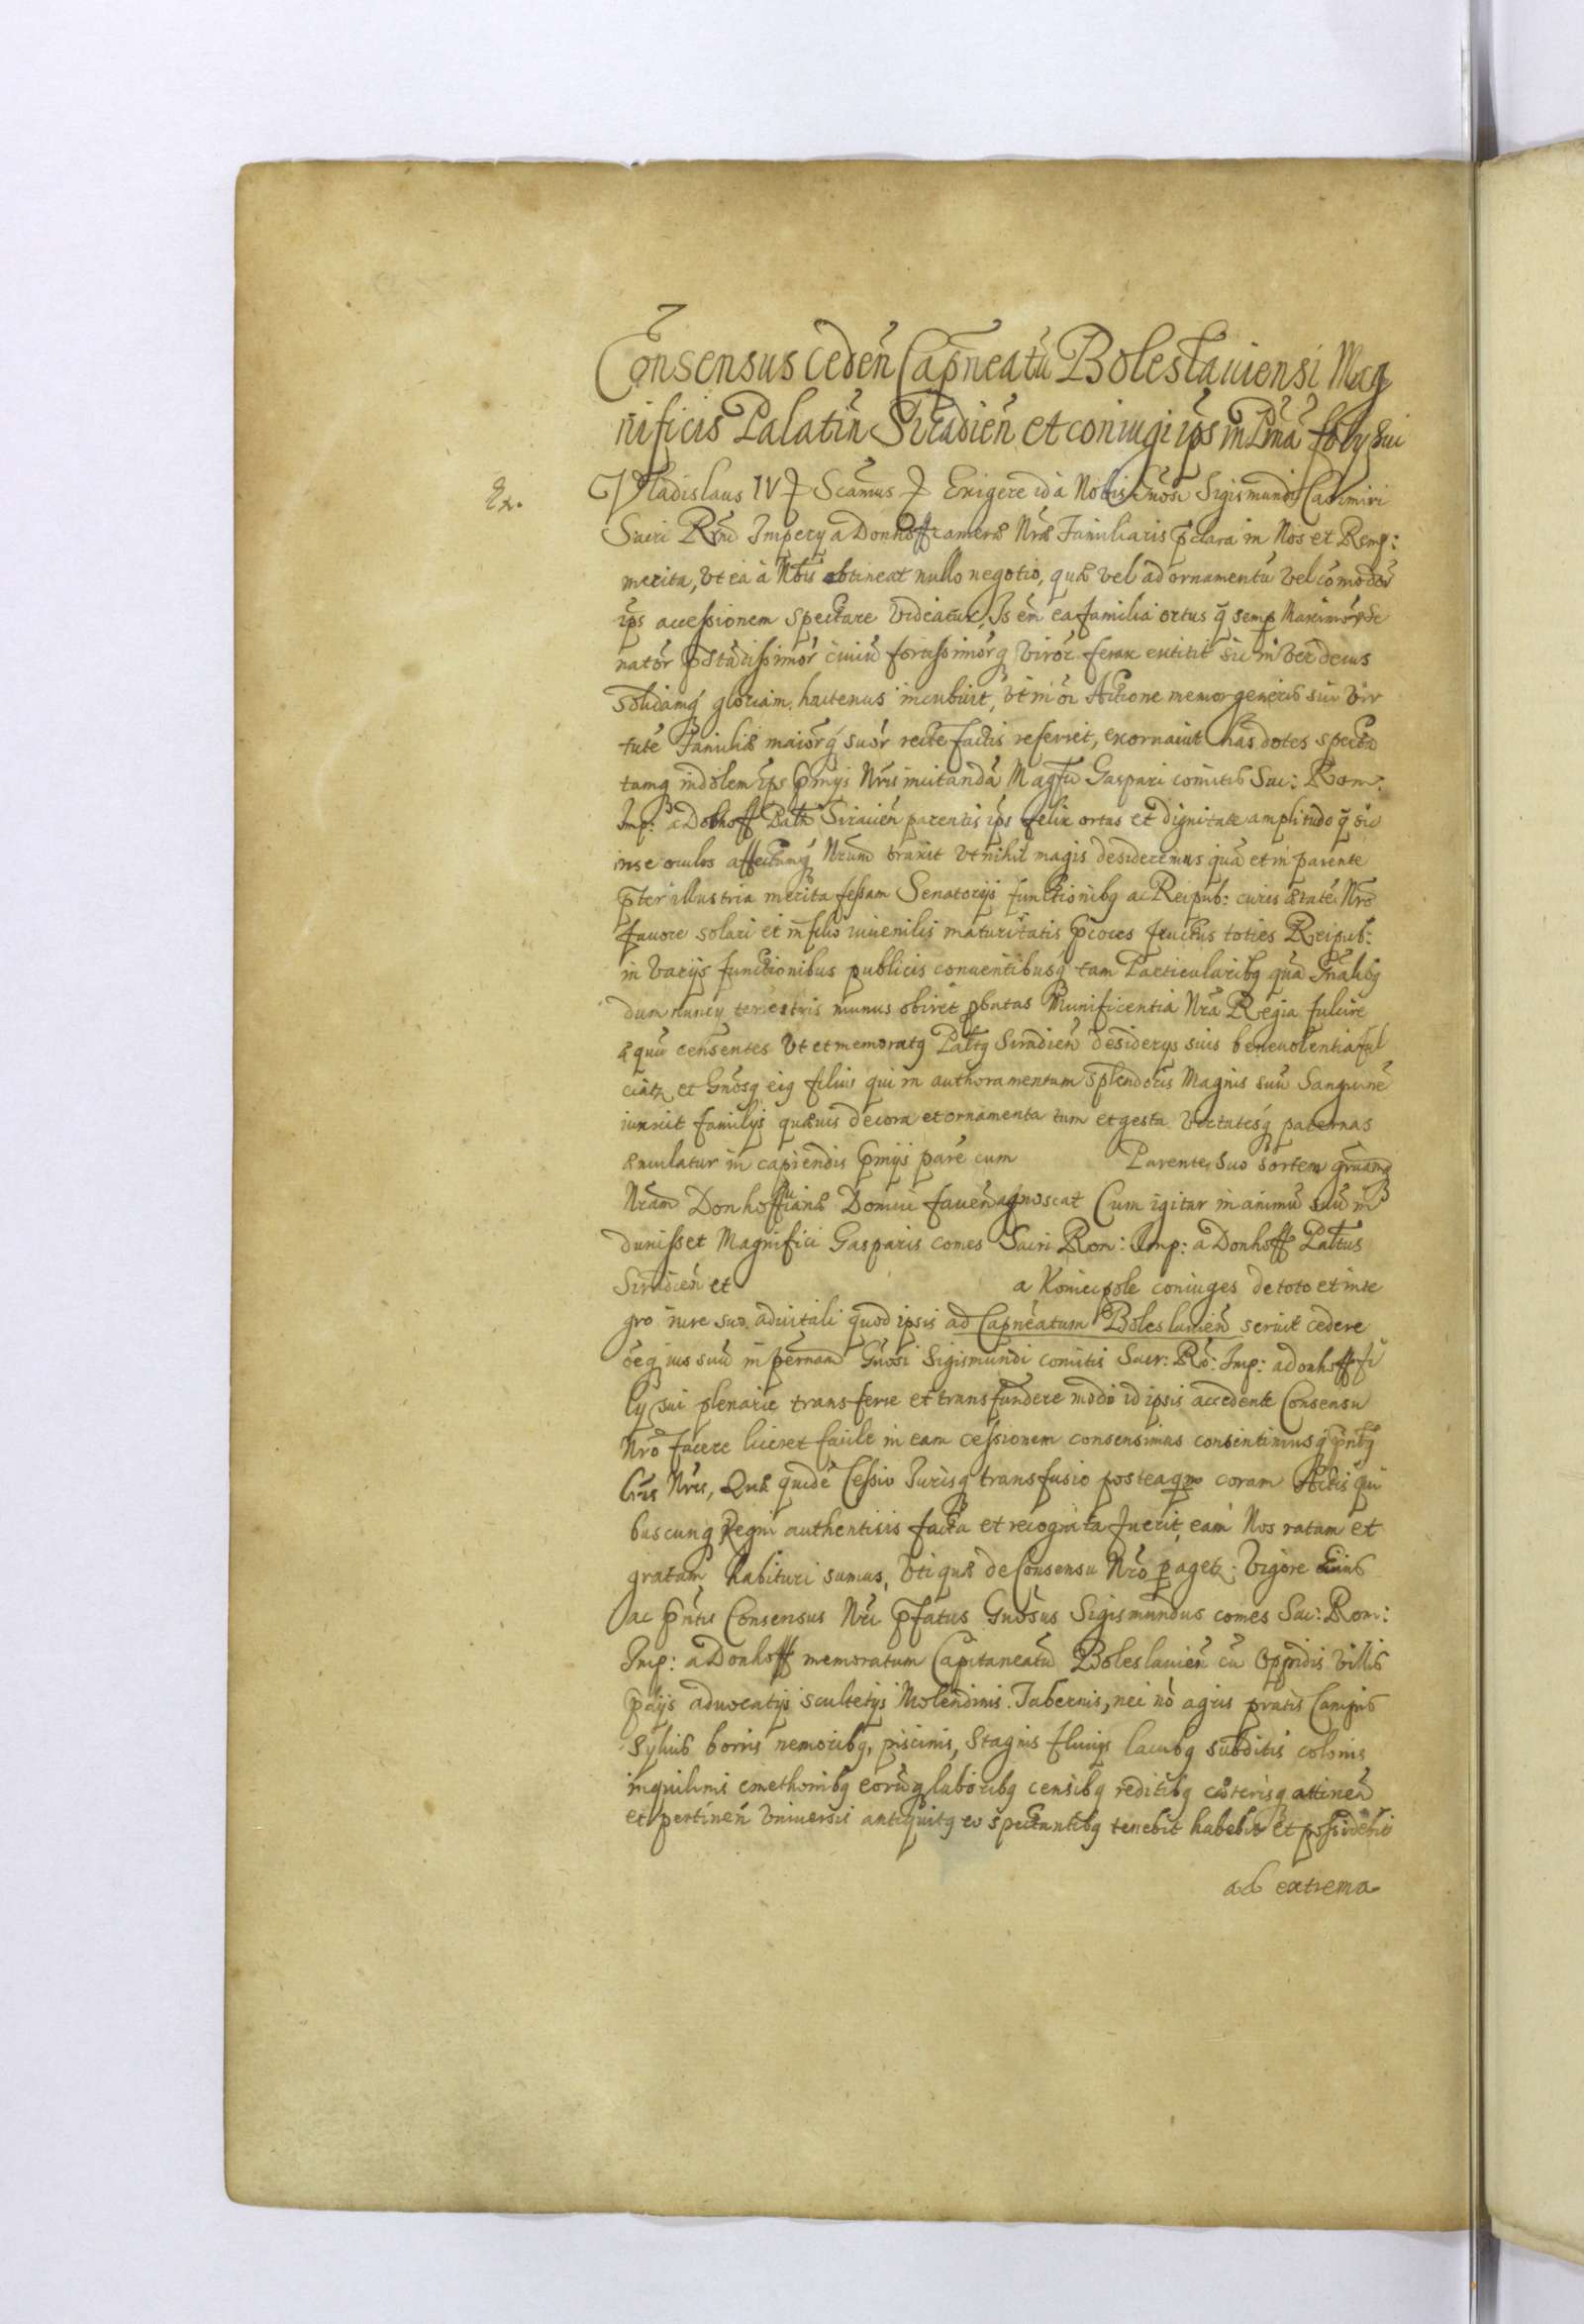 Consensus cedeñ Capneatu Boleslauiensi Mag
nificis Palatin Siradień et coniugi ips in Psnā filÿ sui
Ex.
Vladislaus IV Scamus Exigere id à Nobis Gnosi Sigismundi Casimiri
Sacri Rni Impery a Donhoff cameræ Nræ Familiaris pclara in Nos et Remp:
merita, vt ea à Nobis obtineat nullo negotio, quæ vel ad ornamentū vel cōmodor
ips accessionem spectare videatur, Is em ea familia ortus q semp Maximor Se
nator pstātissimor ciuiū fortissimorq viror ferax extitit sic in ver decus
solidamq gloriam hactenus incubuit, vt in oi Actione memor generis sui vir
tutē Familiæ maiorq suor recte factis referret, exornauit has dotes specta
tamq indolem ips pmijs Nris incitandā Magfci Gaspari comitis Sac: Rom:
Imp: à Dohoff Palt Siradien parentis ips felix ortus et dignitate amplitudo q sic
in se oculos affectumq Nrum traxit vt nihil magis desideremus quā et in parente
pter illustria merita fessam Senatorijs functionibq ac Reipub: curis ætatē Nro
fauore solari et in filio iuuenilis maturitatis pcoces fructus toties Reipub:
in varijs functionibus publicis conuentibusq tam Particularibq quā Gñalibq
dum nuncÿ terrestris munus obiret pbatas Munificentia Nra Regia fulcire
æquū censentes vt et memoratq Paltq Siradień desiderys suis beneuolentia ful
ciatz et Gnosq eiq filius qui in authoramentum splendoris Magnis suū Sanguinē
iunxit familÿs quæuis decora et ornamenta tum et gesta virtutesq paternas
æmulatur in capiendis pmijs parē cum Parente suo sortem grāmq
Nram Donhoffianæ Domui fauen agnoscat Cum igitar in animū suū in
dunisset Magnifici Gasparis comes Sacri Rom: Imp: a Donhoff Paltus
Siradień et a Koniecpole coniuges de toto et inte
gro iure suo aduitali quod ipsis ad Capneatum Boleslauień seruit cedere
oēq ius suū in psnam Gnosi Sigismundi comitis Sacr: Ro: Imp: a donhoff fi
lÿ sui plenarie transferre et transfundere modo id ipsis accedente Consensu
Nro facere liceret facile in eam cessionem consensimus consentimusq pntbq
Lris Nris, Quæ quidē Cessio Iurisq transfusio posteaqm coram Actis qui
buscunq Regni authenticis facta et recognita fuerit, eam Nos ratam et
gratam habituri sumus, vti quæ de Consensu Nro pagetz. Vigore huius
ac pntis Consensus Nri pfatus Gnosus Sigismundus comes Sac: Rom:
Imp: a Donhoff memoratum Capitaneatū Boleslauień cū Oppidis villis
pdijs aduocatijs scultetijs Molendinis. Tabernis, nec nō agris pratis Campis
sÿluis borris nemoribq, piscinis, stagnis fluuijs lacubq subditis colonis
inquilinis cmethonibq eorūq laboribq censibq reditibq cæterisq attineñ
et pertineń vniuersis antiquitq eo spectantibq tenebit habebit et possidebit
ad extrema